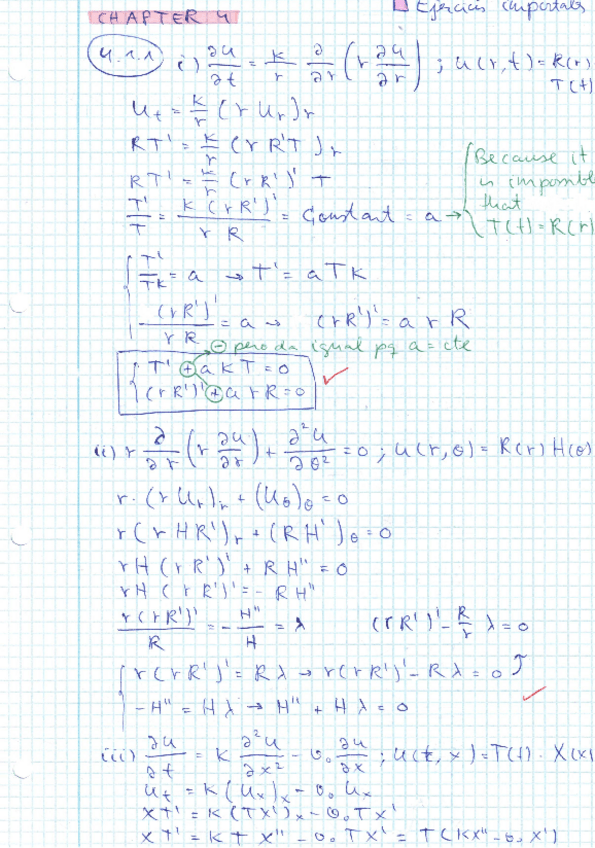 CHAPTER 4
Ejercicios importantes
4.1.1 i) ∂u/∂t = k/r ∂/∂r (r ∂u/∂r) ; u(r,t) = R(r) T(t)
U_t = k/r (r U_r)_r
RT' = k/r (r R'T)_r
RT' = k/r (r R')' T
T'/T = k(rR')'/(rR) = Constant = a → Because it is impossible that T(t) = R(r)
T'/(TK) = a → T' = a T K
(rR')'/(rR) = a → (rR')' = a r R
⊖ pero da igual pq a = cte
T' ⊕ a K T = 0
(rR')' ⊕ a r R = 0
ii) r ∂/∂r (r ∂u/∂r) + ∂²u/∂θ² = 0 ; u(r,θ) = R(r) H(θ)
r · (r U_r)_r + (U_θ)_θ = 0
r (r H R')_r + (R H')_θ = 0
r H (r R')' + R H'' = 0
r H (r R')' = - R H''
r(rR')'/R = - H''/H = λ (r R')' - R/r λ = 0
r(rR')' = Rλ → r(rR')' - Rλ = 0
-H'' = Hλ → H'' + Hλ = 0
iii) ∂u/∂t = k ∂²u/∂x² - v₀ ∂u/∂x ; u(t,x) = T(t) · X(x)
U_t = k(U_x)_x - v₀ U_x
XT' = k(TX')_x - v₀ TX'
XT' = k T X'' - v₀ TX' = T(kX'' - v₀ X')